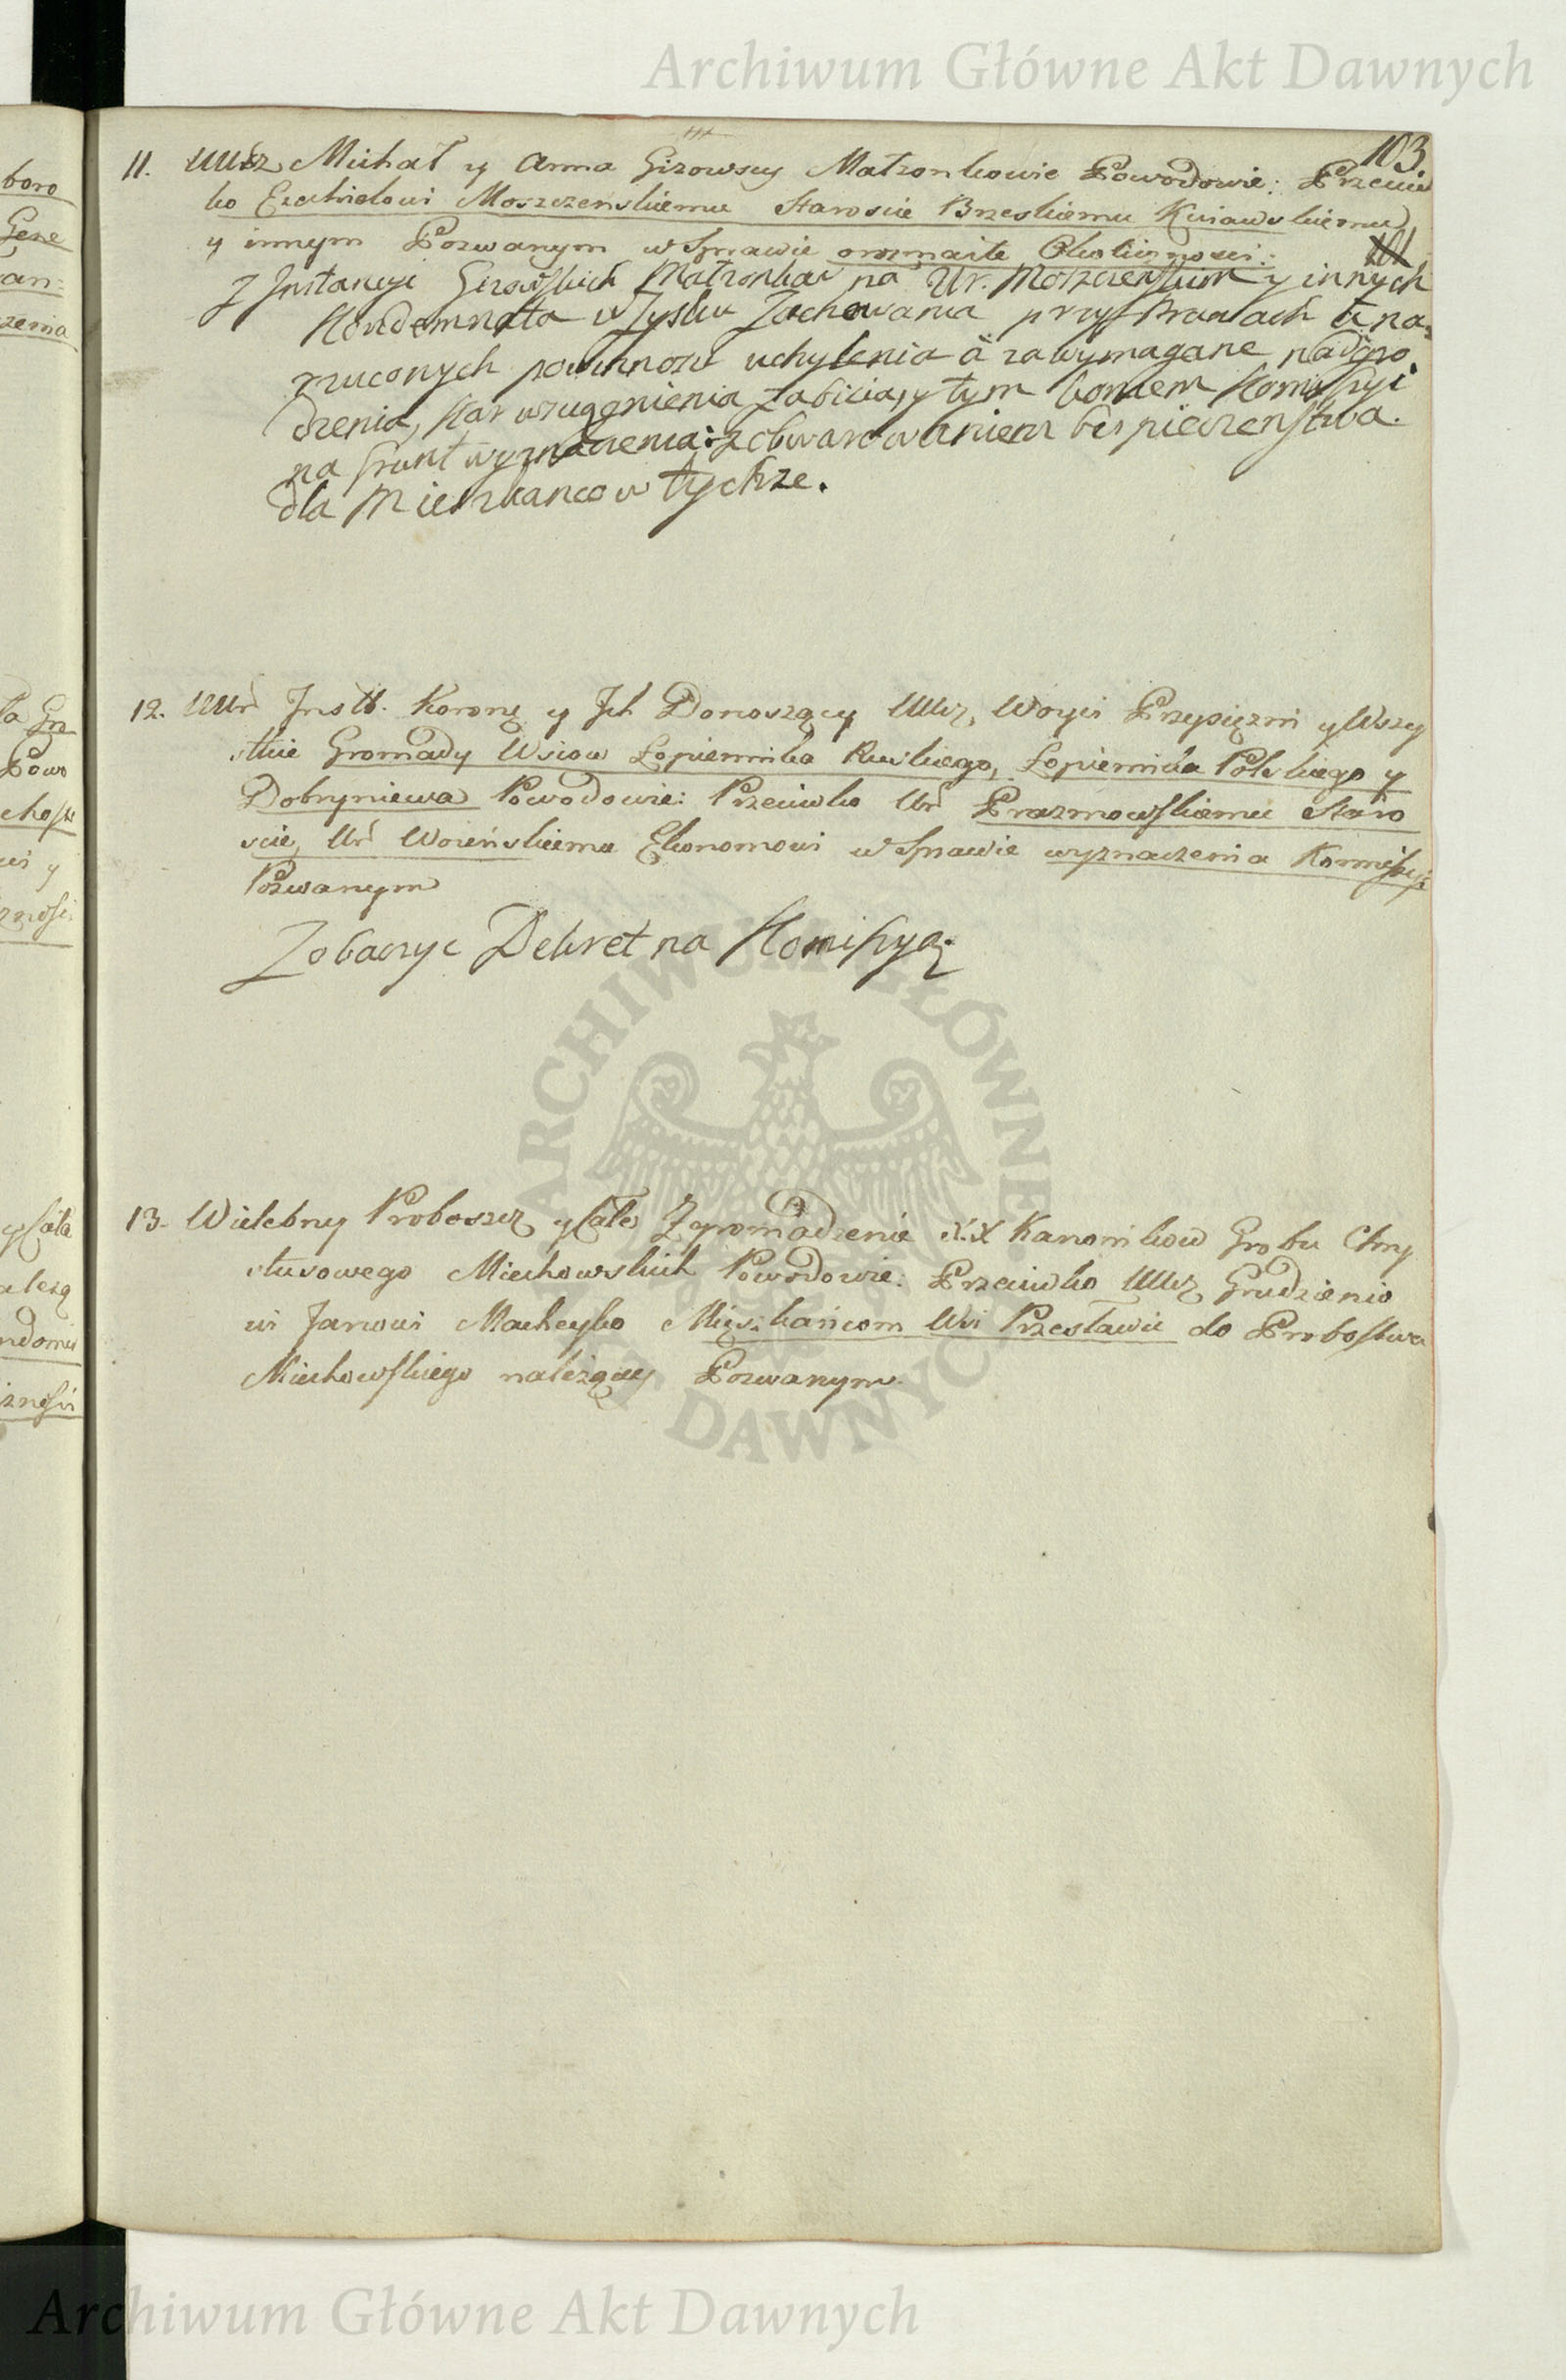 Archiwum Główne Akt Dawnych
103
11. UUrz Michał y Anna Gizowscy Małzonkowie Powodowie: Przeciw
ko Ezechielowi Moszczenskiemu Staroscie Brzeskiemu Kuiawskiemu
y innym Pozwanym w Sprawie orozmaite Okolicznosci:
101
Z Instancyi Gizowskich Małzonkow na Ur. Moszczenskim y innych
Kondemnata w Zysku Zachowania przy Prawach u na:
rzuconych powinnosci uchylenia a za wymagane nadgro
dzenia, Kar wzugenienia zabicia, y tym koncem Kommissyi
na Grunt wyznaczenia: z obwarowaniem bespieczenstwa
dla Mieszkancow tychze.
12. UUr Instt. Koronę y Jch Donoszący UUcz, Woyci Przysięzni y Wszy
stkie Gromady Wsiow Łopiennika Ruskiego, Łopiennika Polskiego y
Dobryniewa Powodowie: Przeciwko Ur Prazmowskiemu Staro
scie, Ur Woienskiemu Ekonomowi w Sprawie wyznaczenia Kommissyi
Pozwanym
Zobaczyc Dekret na Komissyą.
13. Wielebny Proboszcz y Całe Zgromadzenie XX Kanonikow Grobu Chry
stusowego Miechowskich Powodowie: Przeciwko UUcz Grudzienio
wi Janowi Macheyko Mięszkańcom Wsi Przesławic do Probostwa
Miechowskiego nalezący Pozwanym
ARCHIWUM GŁÓWNE AKT DAWNYCH
Archiwum Główne Akt Dawnych